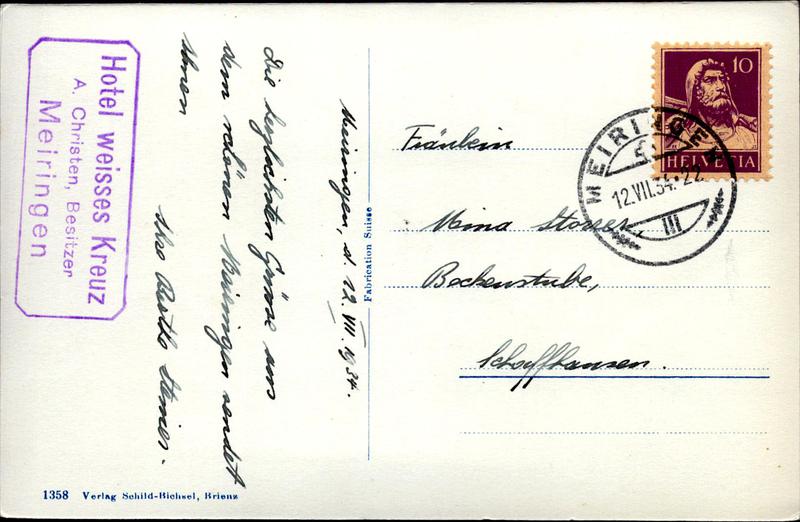 Hotel weisses Kreuz
A. Christen, Besitzer
Meiringen
Meiringen, d. 12. VII. 1934.
Die herzlichsten Grüsse aus
dem schönen Meiringen sendet
Ihnen
Ihre
Fabrication Suisse
10
HELVETIA
MEIRINGEN
12.VII.34.22
III
Fräulein
Mina
Beckenstube,
Schaffhausen.
1358 Verlag Schild-Bichsel, Brienz